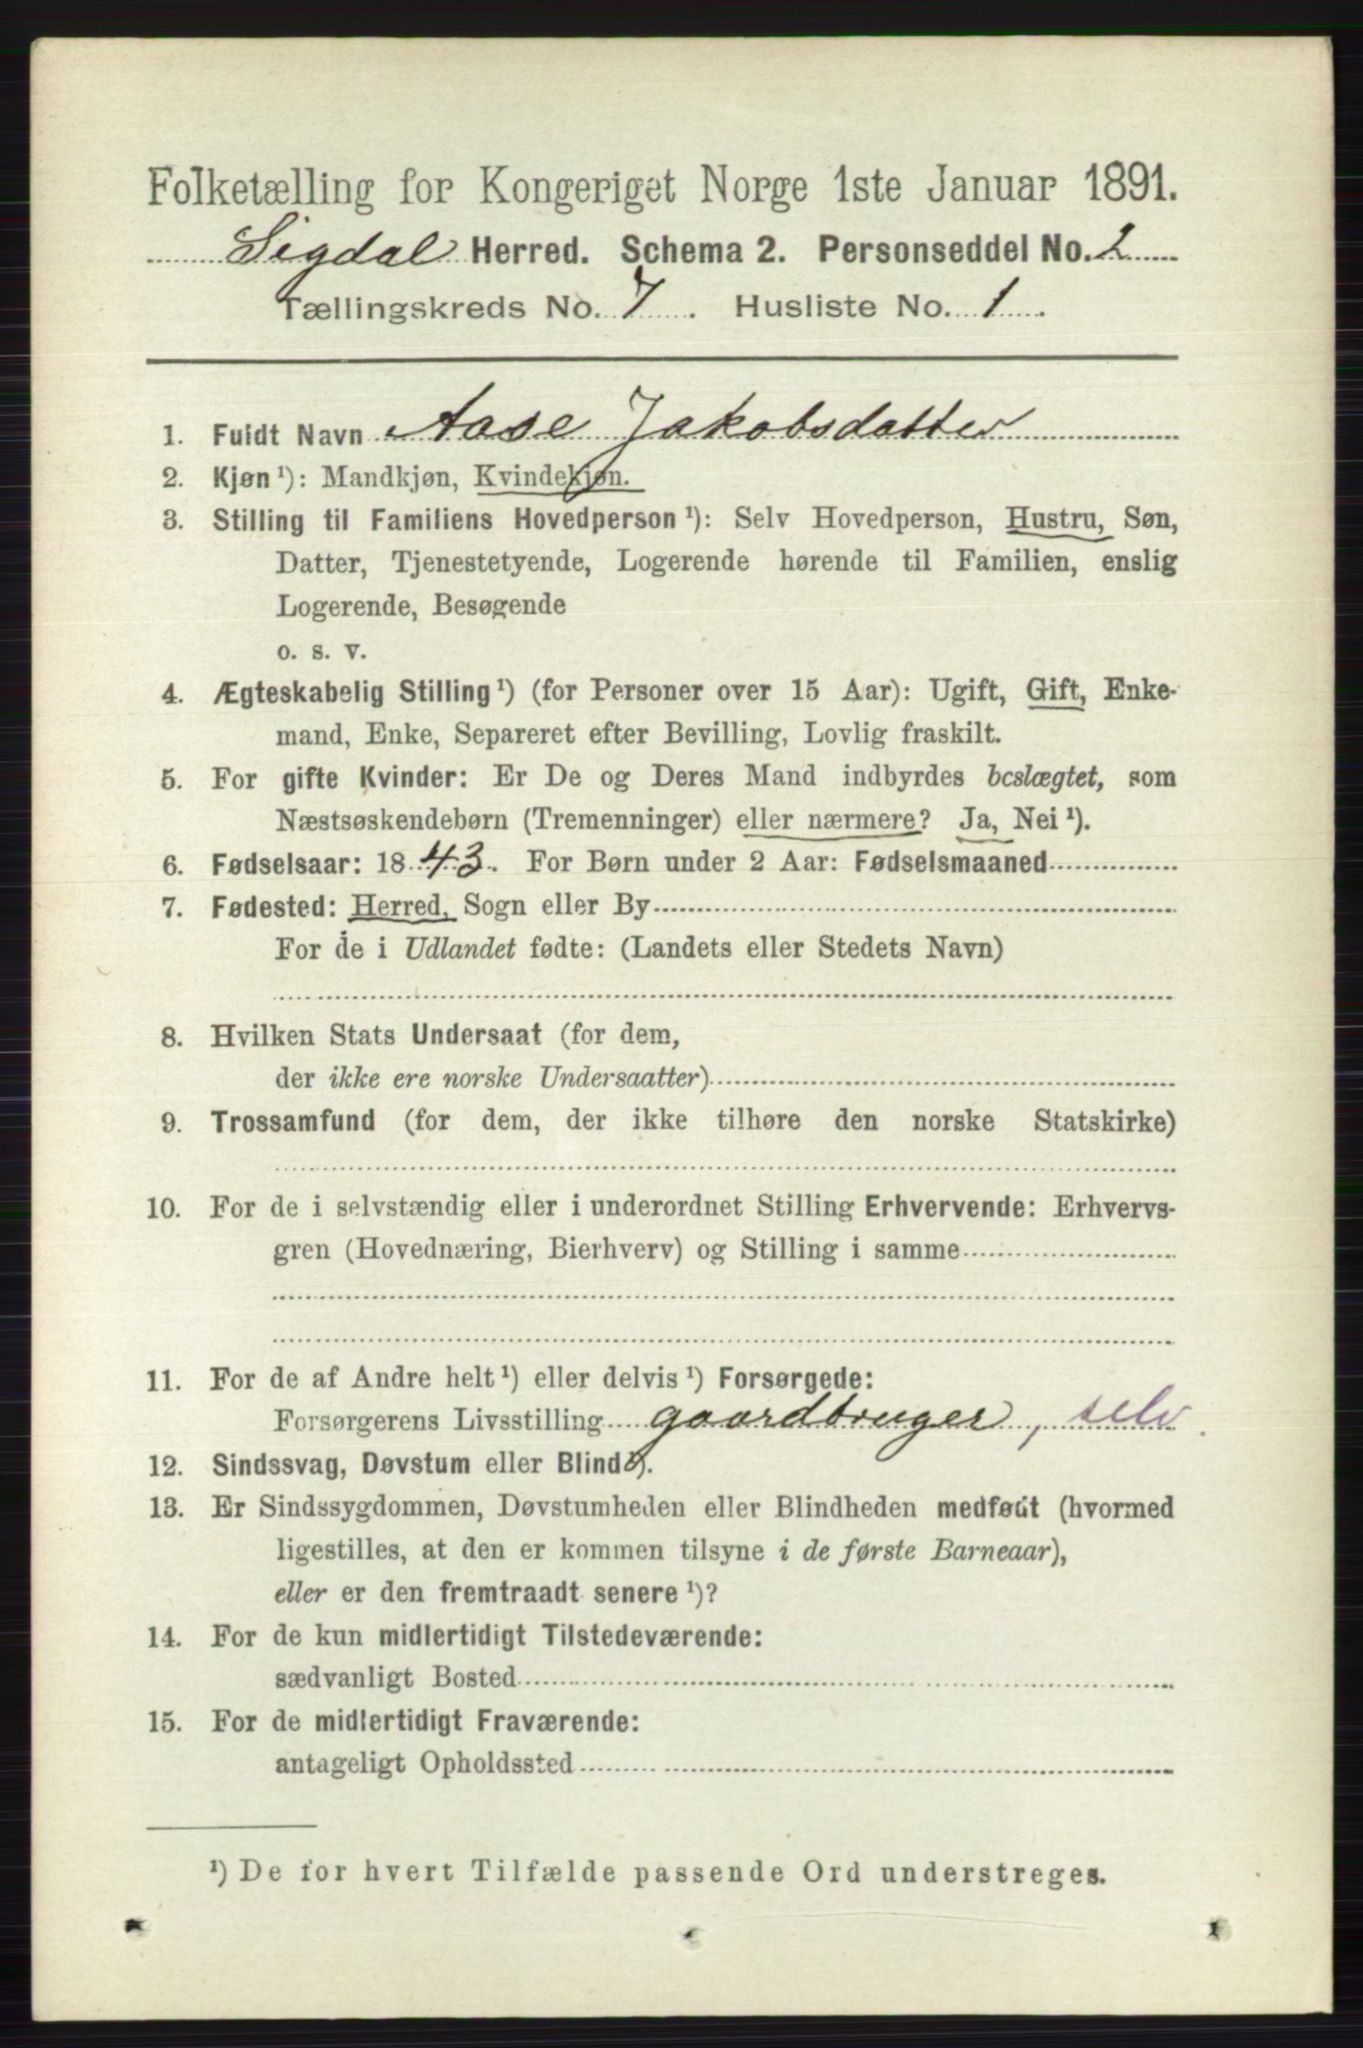 Folketælling for Kongeriget Norge 1ste Januar 1891.
Sigdal Herred. Schema 2. Personseddel No. 2
Tællingskreds No. 7. Husliste No. 1.
1. Fuldt Navn Aase Jakobsdatter
2. Kjøn ¹): Mandkjøn, Kvindekjøn.
3. Stilling til Familiens Hovedperson ¹): Selv Hovedperson, Hustru, Søn,
Datter, Tjenestetyende, Logerende hørende til Familien, enslig
Logerende, Besøgende
o. s. v.
4. Ægteskabelig Stilling ¹) (for Personer over 15 Aar): Ugift, Gift, Enke-
mand, Enke, Separeret efter Bevilling, Lovlig fraskilt.
5. For gifte Kvinder: Er De og Deres Mand indbyrdes beslægtet, som
Næstsøskendebørn (Tremenninger) eller nærmere? Ja, Nei ¹).
6. Fødselsaar: 1843. For Børn under 2 Aar: Fødselsmaaned
7. Fødested: Herred, Sogn eller By
For de i Udlandet fødte: (Landets eller Stedets Navn)
8. Hvilken Stats Undersaat (for dem,
der ikke ere norske Undersaatter)
9. Trossamfund (for dem, der ikke tilhøre den norske Statskirke)
10. For de i selvstændig eller i underordnet Stilling Erhvervende: Erhvervs-
gren (Hovednæring, Bierhverv) og Stilling i samme
11. For de af Andre helt ¹) eller delvis ¹) Forsørgede:
Forsørgerens Livsstilling gaardbruger, selv
12. Sindssvag, Døvstum eller Blind ¹).
13. Er Sindssygdommen, Døvstumheden eller Blindheden medfødt (hvormed
ligestilles, at den er kommen tilsyne i de første Barneaar),
eller er den fremtraadt senere ¹)?
14. For de kun midlertidigt Tilstedeværende:
sædvanligt Bosted
15. For de midlertidigt Fraværende:
antageligt Opholdssted
¹) De for hvert Tilfælde passende Ord understreges.